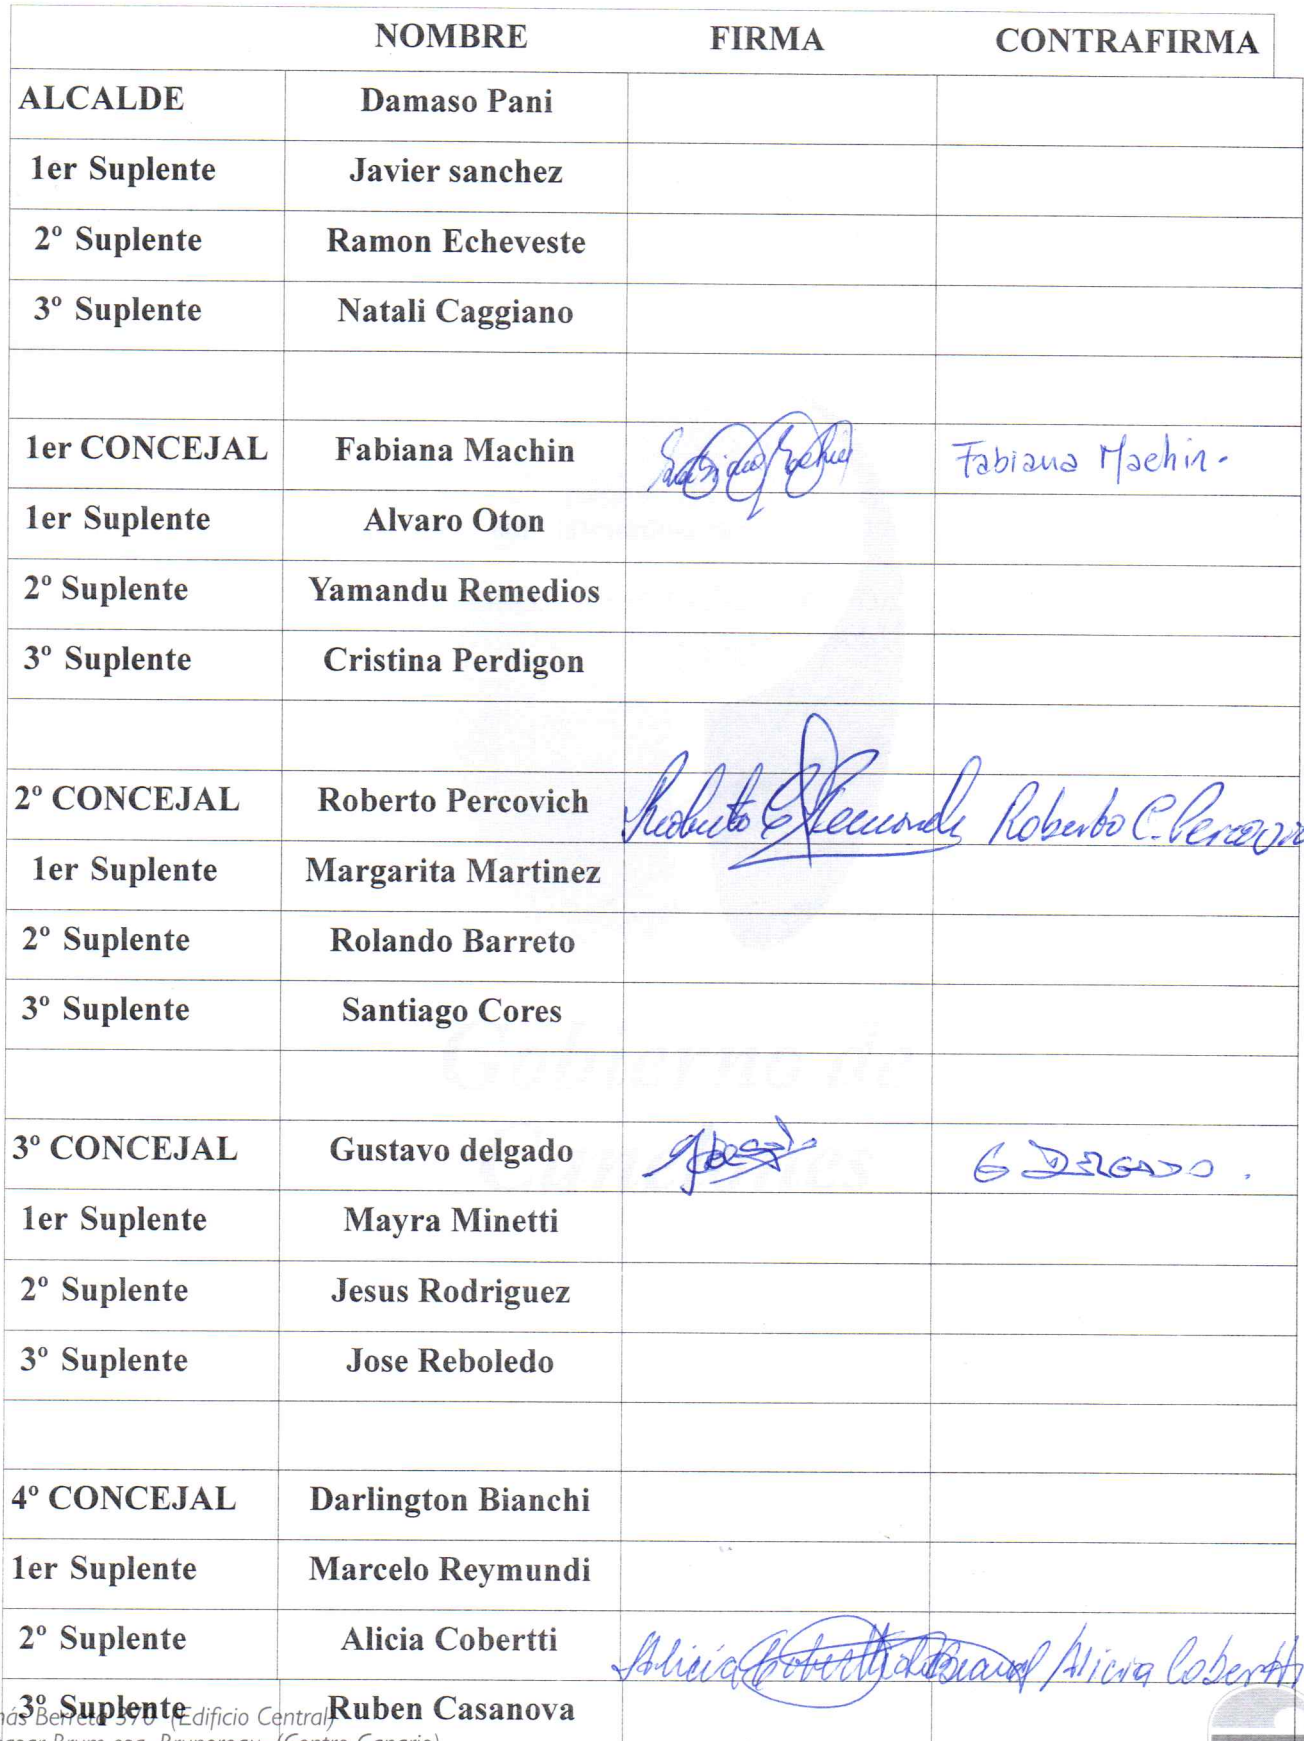 NOMBRE FIRMA CONTRAFIRMA
ALCALDE Damaso Pani
1er Suplente Javier sanchez
2º Suplente Ramon Echeveste
3º Suplente Natali Caggiano
1er CONCEJAL Fabiana Machin Fabiana Machin Fabiana Machin.
1er Suplente Alvaro Oton
2º Suplente Yamandu Remedios
3º Suplente Cristina Perdigon
2º CONCEJAL Roberto Percovich Roberto Roberto C. Percovich
1er Suplente Margarita Martinez
2º Suplente Rolando Barreto
3º Suplente Santiago Cores
Gobierno de
Canelones
3º CONCEJAL Gustavo delgado G DELGADO.
1er Suplente Mayra Minetti
2º Suplente Jesus Rodriguez
3º Suplente Jose Reboledo
4º CONCEJAL Darlington Bianchi
1er Suplente Marcelo Reymundi
2º Suplente Alicia Cobertti Alicia Cobertti Alicia Cobertti
3º Suplente Ruben Casanova
ás Berreta 370 (Edificio Central)